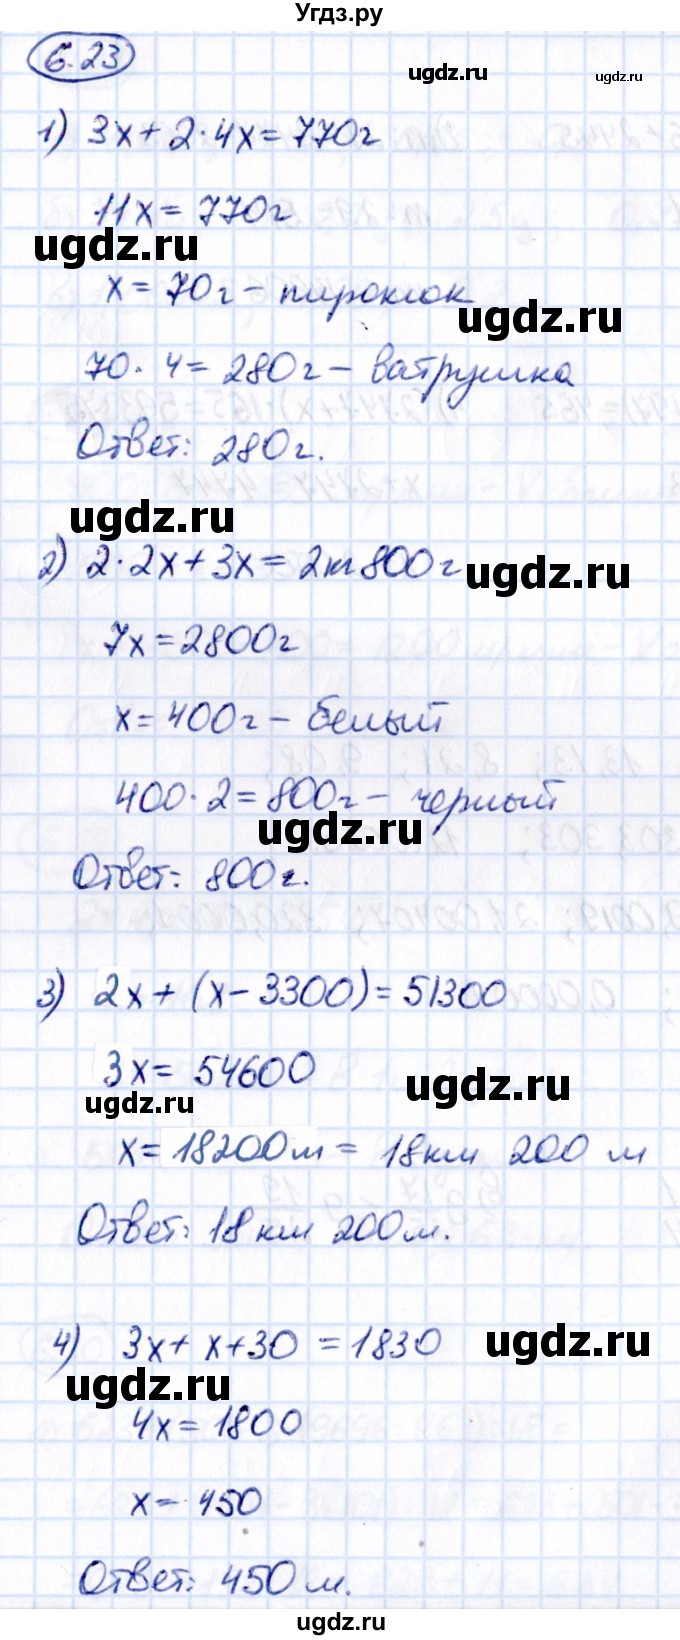 Угдз.ру
6.23
ugdz.ru
ugdz.ru
1) 3x + 2·4x = 770г
11x = 770г
ugdz.ru
x = 70г – пирожок
ugdz.ru
70·4 = 280г – ватрушка
Ответ: 280г.
ugdz.ru
2) 2·2x + 3x = 2кг 800г
ugdz.ru
7x = 2800г
x = 400г – белый
400·2 = 800г – черный
ugdz.ru
Ответ: 800г.
3) 2x + (x – 3300) = 51300
3x = 54600
ugdz.ru
ugdz.ru
x = 18200м = 18км 200 м
Ответ: 18км 200м.
4) 3x + x + 30 = 1830
ugdz.ru
ugdz.ru
4x = 1800
x = 450
Ответ: 450 м.
ugdz.ru